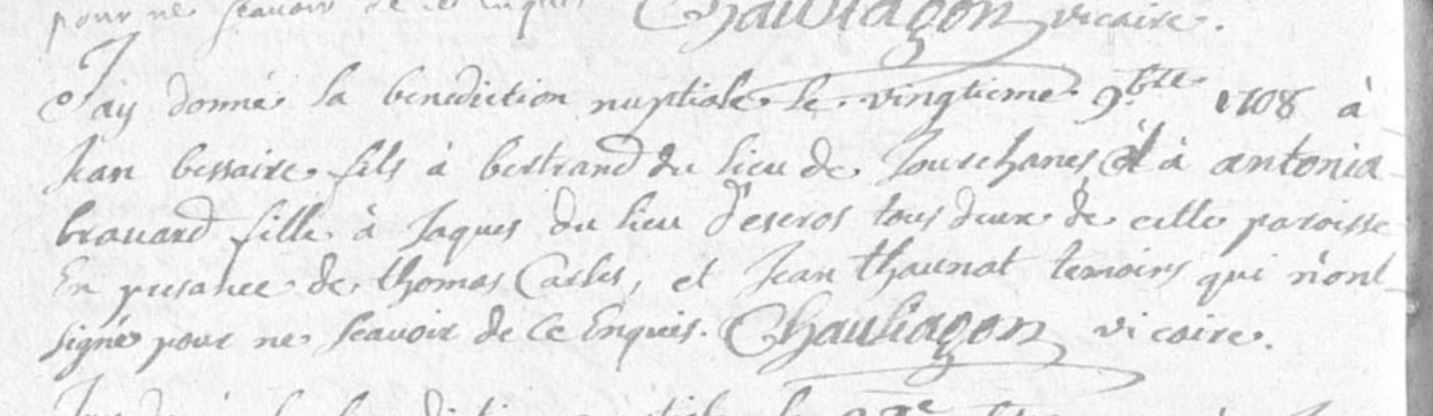 pour ne scavoir de ce enquis Chauliagon vicaire.
J'ay donné la benediction nuptiale le vingtieme 9.bre 1708 à
Jean bessaire fils à bertrand du lieu de Jourchanes et à antonia
brauard fille à Jaques du lieu d'escros tous deux de cette paroisse
En presance de thomas Casles, et Jean thaunat temoins qui n'ont
signé pour ne scavoir de ce Enquis. Chauliagon vicaire.